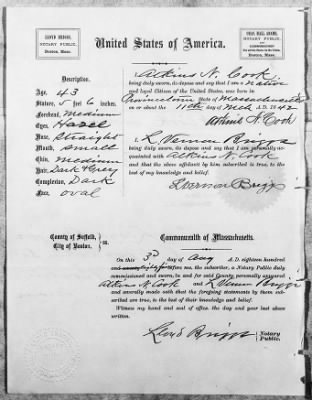 LLOYD BRIGGS,
NOTARY PUBLIC,
Boston, Mass.
United States of America.
CHAS. HALL ADAMS,
NOTARY PUBLIC,
Boston, Mass.
Description.
Age 43
Stature 5 feet 6 inches.
Forehead Medium
Eyes Hazel
Nose Straight
Mouth Small
Chin Medium
Hair Dark Grey
Complexion Dark
Face oval
I, Atkins N. Cook
being duly sworn, do depose and say that I am a Native
and loyal Citizen of the United States, was born in
Provincetown State of Massachusetts
on or about the 11th day of Mch 1842
Atkins N. Cook
I, L Vernon Briggs
being duly sworn, do depose and say that I am personally acquainted with Atkins N. Cook
and that the above affidavit by him subscribed is true, to the
best of my knowledge and belief.
L Vernon Briggs
County of Suffolk,
City of Boston.
} ss.
Commonwealth of Massachusetts.
On this 3d day of Aug A.D. eighteen hundred
before me, the subscriber, a Notary Public duly
commissioned and sworn, in and for said County, personally appeared
Atkins N. Cook and L Vernon Briggs
and severally made oath that the foregoing statements by them subscribed are true, to the best of their knowledge and belief.
Witness my hand and seal of office, the day and year last above
written.
Lloyd Briggs Notary
Public.